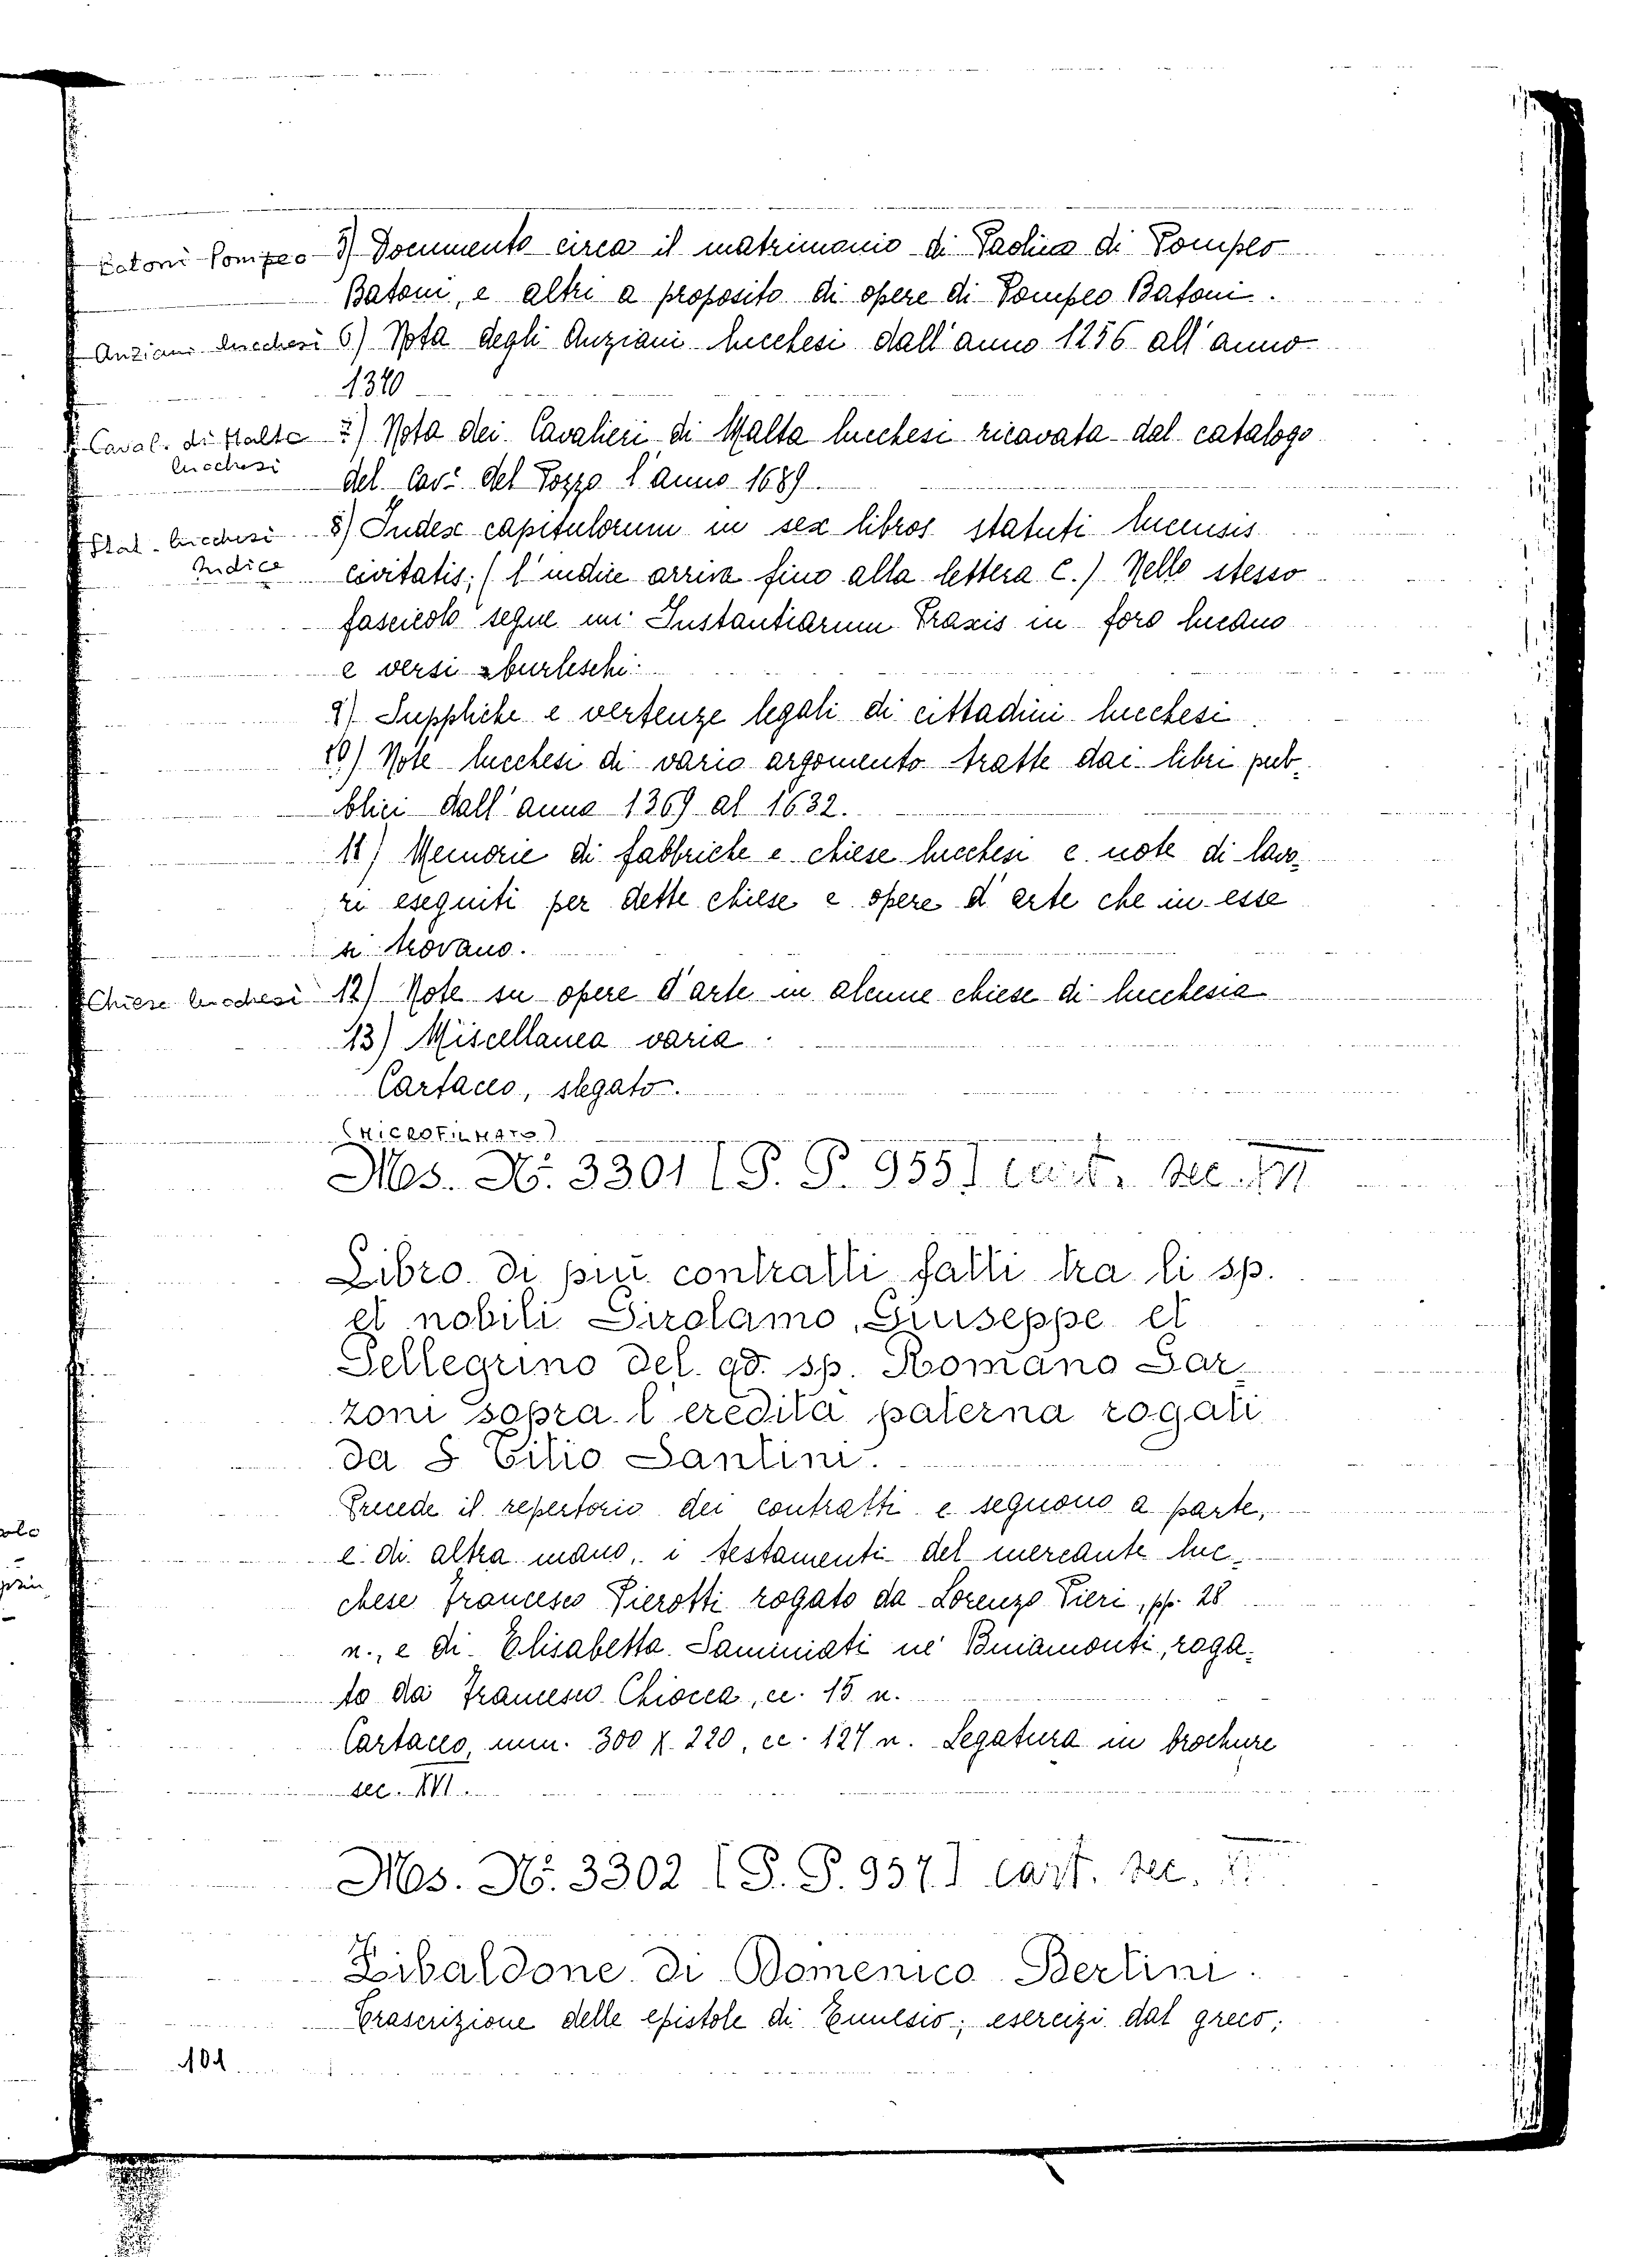 Batoni Pompeo 5) Documento circa il matrimonio di Paolina di Pompeo
Batoni, e altri a proposito di opere di Pompeo Batoni.
Anziani lucchesi 6) Nota degli Anziani lucchesi dall'anno 1256 all'anno
1370
Caval. di Malta 7) Nota dei Cavalieri di Malta lucchesi ricavata dal catalogo
lucchesi
del Cav. del Pozzo l'anno 1689.
Stat. lucchesi 8) Index capitulorum in sex libros statuti lucensis
Indice civitatis; (l'indice arriva fino alla lettera C.) Nello stesso
fascicolo segue un: Instantiarum Praxis in foro lucano
e versi burleschi.
9) Suppliche e vertenze legali di cittadini lucchesi
10) Note lucchesi di vario argomento tratte dai libri pub-
blici dall'anno 1369 al 1632.
11) Memorie di fabbriche e chiese lucchesi e note di lavo-
ri eseguiti per dette chiese e opere d'arte che in esse
si trovano.
Chiese lucchesi 12) Note su opere d'arte in alcune chiese di lucchesia
13) Miscellanea varia.
Cartaceo, slegato.
(MICROFILMATO)
Mss. Nº. 3301 [P. P. 955] cart. sec. XVI
Libro di più contratti fatti tra li sp.
et nobili Girolamo, Giuseppe et
Pellegrino del qd. sp. Romano Gar-
zoni sopra l'eredità paterna rogati
da S Tilio Santini.
Precede il repertorio dei contratti e seguono a parte,
e di altra mano, i testamenti del mercante luc-
chese Francesco Pierotti rogato da Lorenzo Pieri, pp. 28
n., e di Elisabetta Saminiati né Buiamonti, roga-
to da Francesco Chiocca, cc. 15 n.
Cartaceo, mm. 300 X 220, cc. 127 n. Legatura in brochure
sec. XVI.
Mss. Nº. 3302 [P. P. 957] cart. sec.
Zibaldone di Domenico Bertini.
Trascrizione delle epistole di Ennesio; esercizi dal greco;
101